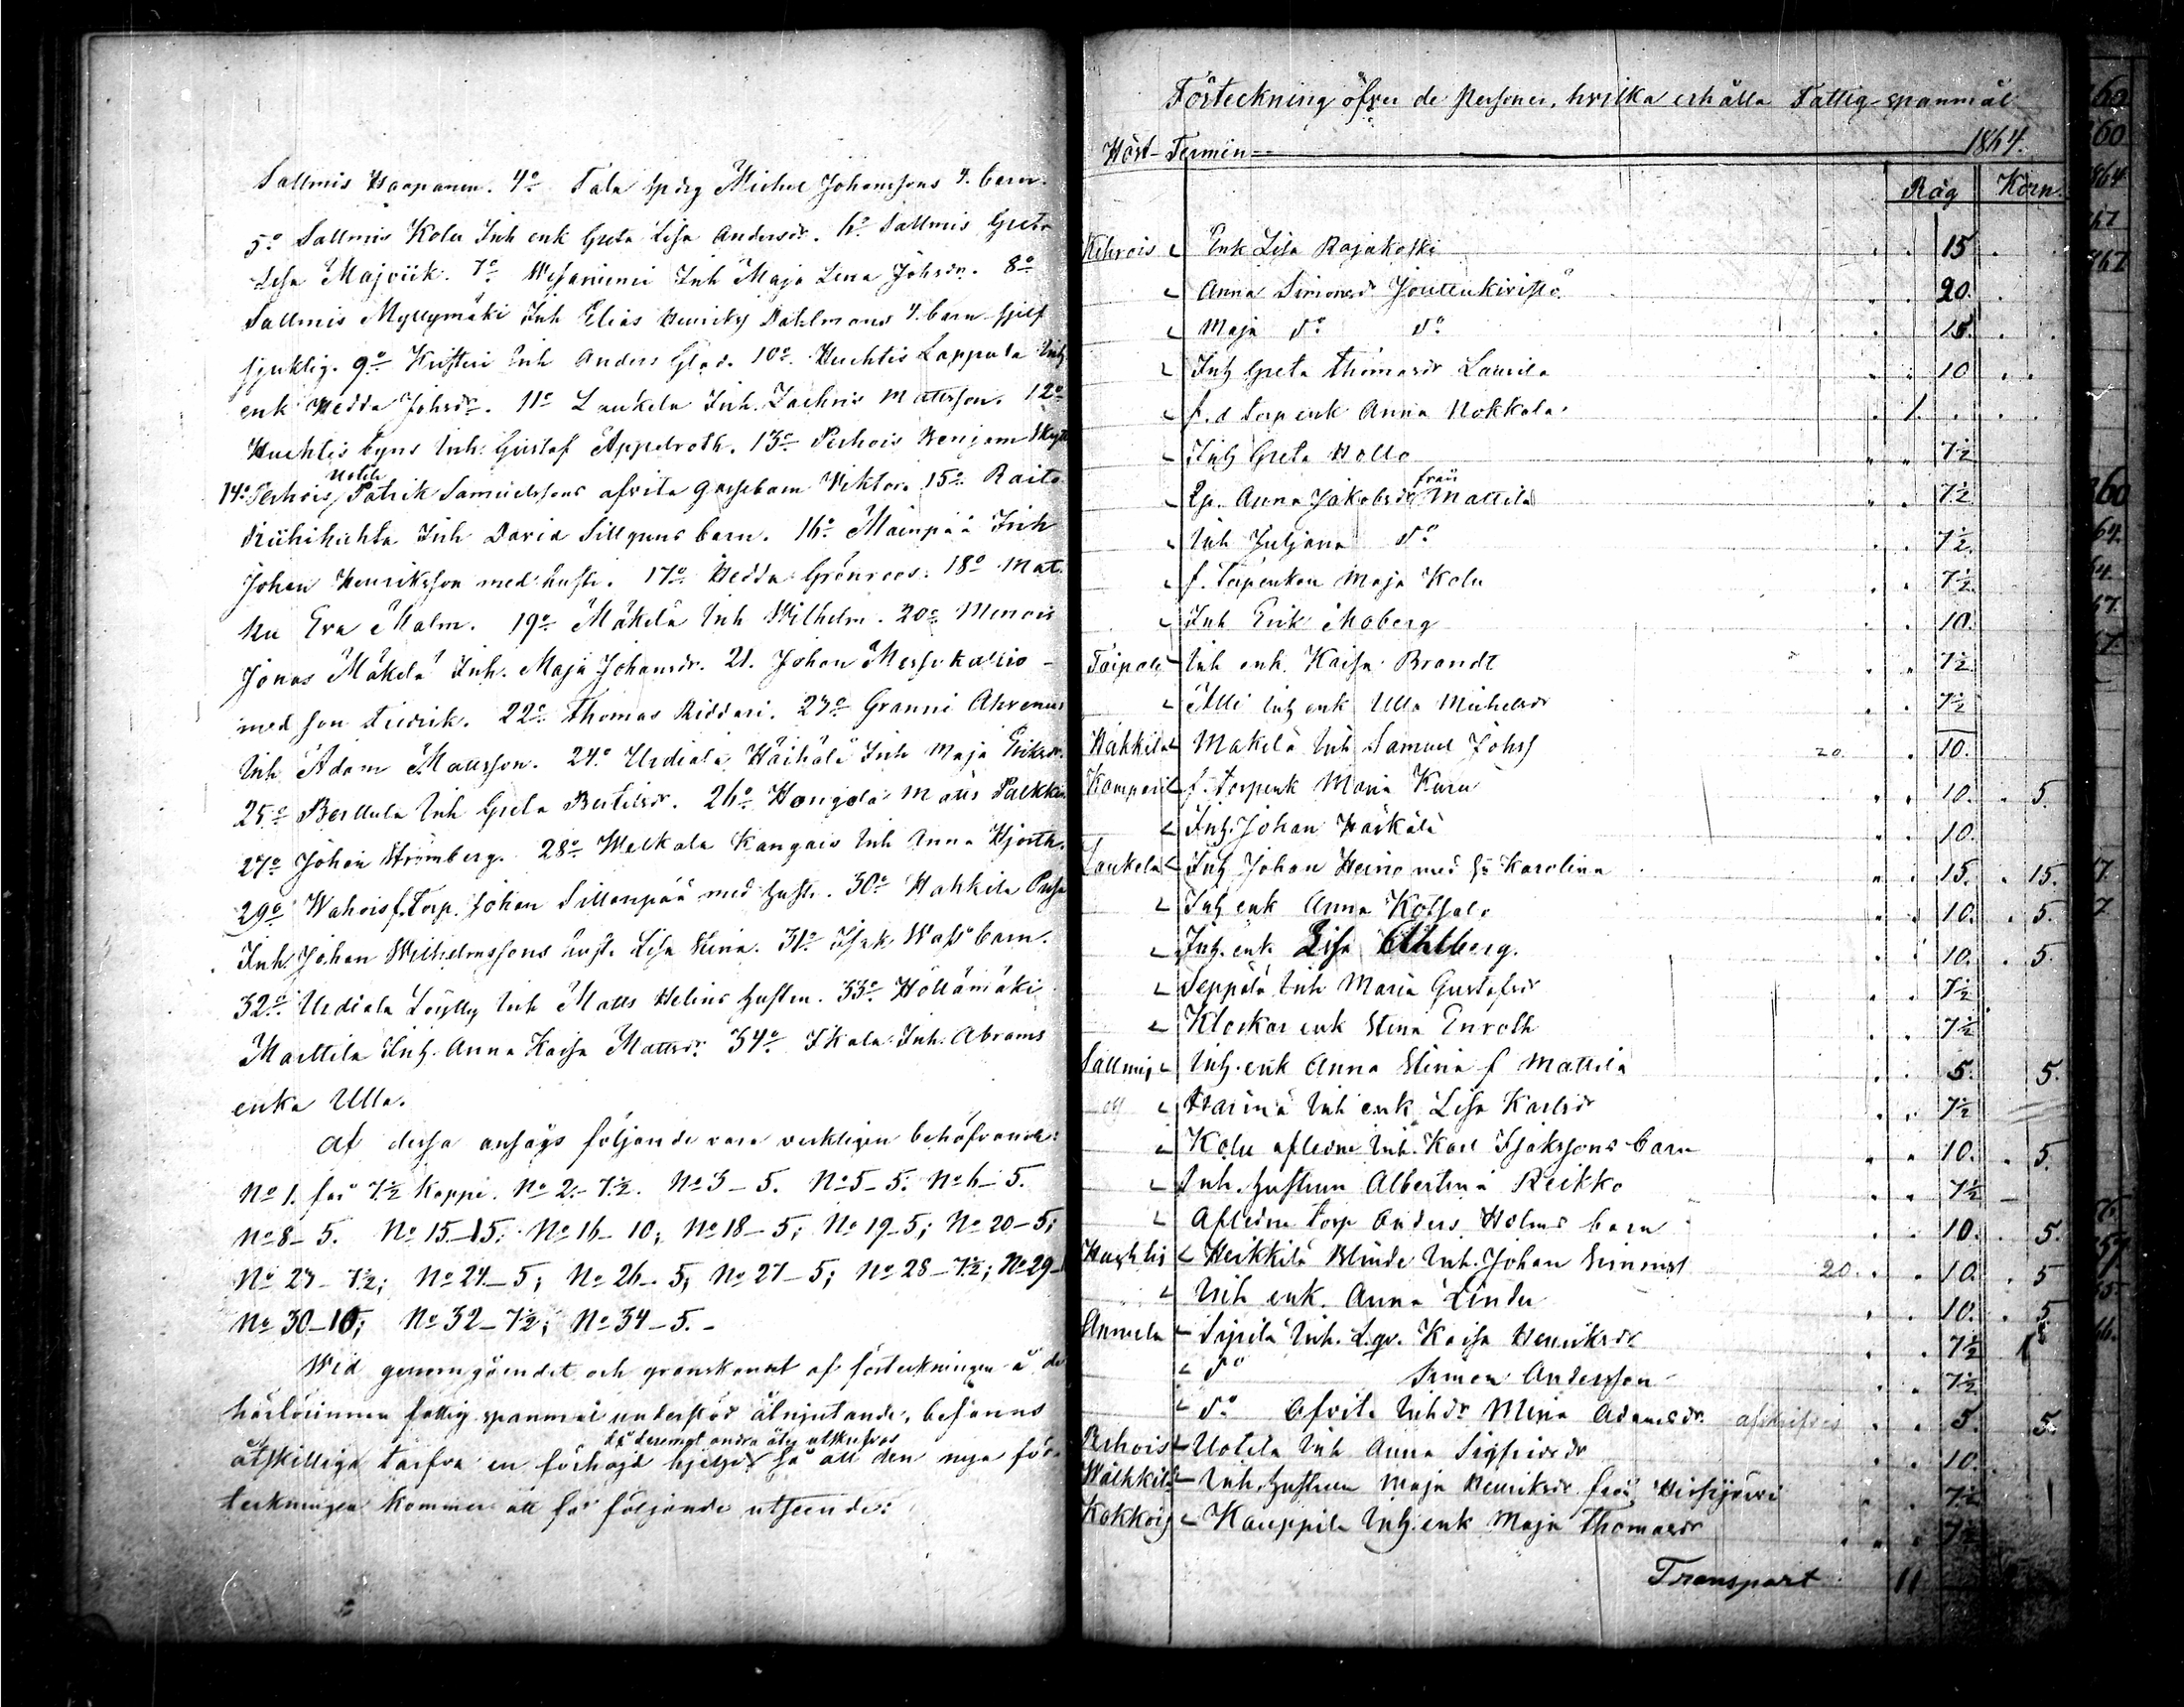 Sallmis Haapanen. 4o Tala spåg Michel Johanssons 4. barn.
5o Sallmis Kolu Inh enk Greta Lisa Andersdr. 6o Sallmis Greta
Lisa Majviik. 7o Wesaniemi Inh Maja Lena Johsdr. 8o
Sallmis Myllymäki Inh Elias Henriks Dahlmans 4. barn sjelf
sjuklig. 9o Inh Anders Glad. 10o Huchtis Lappala Inh
enk Hedda Johsdr. 11o Laukela Inh. Zachris Mattsson. 12o
Huchtis byns Inh. Gustaf Appelroth. 13o Perhois Benjam
14o Perhois Uotila Patrik Samuelssons afvita gossebarn Viktor. 15o Raito
Inh David Sillgrens barn. 16o Mainpää Inh
Johan Henriksson med hustr. 17o Hedda Grönroos. 18o Mat.
ku Eva Malm. 19o Mäkelä Inh Wilhelm. 20o Menois
Jonas Mäkelä Inh. Maja Johansdr. 21. Johan Messukallio -
med son Fredrik. 22o Thomas Riddari. 23o Granni Ahrenius
Inh Adam Mattsson. 24o Urdiala Häihälä Inh Maja Eriksdr.
25o Berttula Inh Greta Bertilsdr. 26o Hongola Matts
27o Johan Strömberg. 28o Melkola Kangais Inh Anna Hjorth.
29o Wahois f. Torp. Johan Sillanpää med hustr. 30o Hahkila
Inh. Johan Wilhelmssons hust. Lisa Stina. 31o Isak Wass barn.
32o Urdiala Löylly Inh Matts Helins hustru. 33o Höllämäki
Marttila Inh. Anna Kaisa Mattsdr. 34o Ikala Inh. Abrams
enka Ulla.
Af dessa ansågs följande vara verkligen behöfvande:
No 1. får 7 1/2 kappe. No 2.- 7 1/2. No 3 - 5. No 5 - 5. No 6 - 5.
No 8 - 5. No 15 - 15; No 16 - 10; No 18 - 5; No 19 - 5; No 20 - 5;
No 23 - 7 1/2; No 24 - 5; No 26 - 5; No 27 - 5; No 28 - 7 1/2; No 29 -
No 30 - 10; No 32 - 7 1/2; No 34 - 5. -
Wid genomgåendet och granskandet af förteckningen å de
härförinnan fattig spanmål understöd åtnjutande, befanns
då deremot andra åter utskrefvos
åtskilliga tarfva en förhöjd hjelp så att den nya för-
teckningen kommer att få följande utseende:
Förteckning öfver de Personer, hvilka erhålla Fattig-spanmål
Höst-Termin 1864.
Råg Korn.
Kehrois Enk Lisa Rajakoski 15
Anna Simonsdr Joutenkivistö 20.
Maja do do 15.
Inh Greta Thomasdr Laurila 10
f. d. Torp enk Anna Nokkala 1.
Inh Greta Hollo 7 1/2
Pig. Anna Jakobsdr från Mattila 7 1/2
Inh Juljana do 7 1/2.
f. Torpenkan Maja Kolu 7 1/2
Inh Erik Moberg 10.
Toipola Inh enk. Kaisa Brandt 7 1/2
Alli Inh enk Ulla Michelsdr 7 1/2
Hahkila Mäkelä Inh Samuel Johss 20. 10.
Kompari f. Torpenk Maria Kuru 10. 5.
Inh. Johan Härkälä 10.
Laukela Inh Johan Heino med hu Karolina 15. 15.
Inh enk Anna Kotsalo 10. 5.
Inh. enk Lisa Ahlberg. 10. 5
Seppälä Inh Maria Gustafsdr 7 1/2
Klockar enk Stina Enroth 7 1/2
Sallmis Inh. enk Anna Stina f Mattila 5. 5.
Inh enk Lisa Karlsdr 7 1/2
Kolu aflidne Inh. Karl Isakssons barn 10. 5.
Inh. hustrun Albertina Reikko 7 1/2
Aflidne torp Anders Holms barn 10. 5.
Huchtis Heikkilä Blinde Inh. Johan 20. 10. 5
Inh enk. Anna Lindu 10. 5
Annula Sipilä Inh. Kaisa Henriksdr 7 1/2
do Simon Andersson 7 1/2
do Afvita Inhdr Mina Adamsdr 5. 5.
Perhois Uotila Inh Anna Sigfridsdr 10.
Inh. hustrun Maja Henriksdr från Hirsijärvi 7 1/2
Kokkois Kauppila Inh. enk Maja Thomasdr 7 1/2
Transport 11